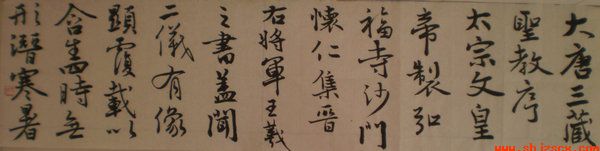 大唐三藏
聖教序
太宗文皇
帝製弘
福寺沙門
懷仁集晉
右將軍王羲
之書蓋聞
二儀有像
顯覆載以
含生四時無
形潛寒暑